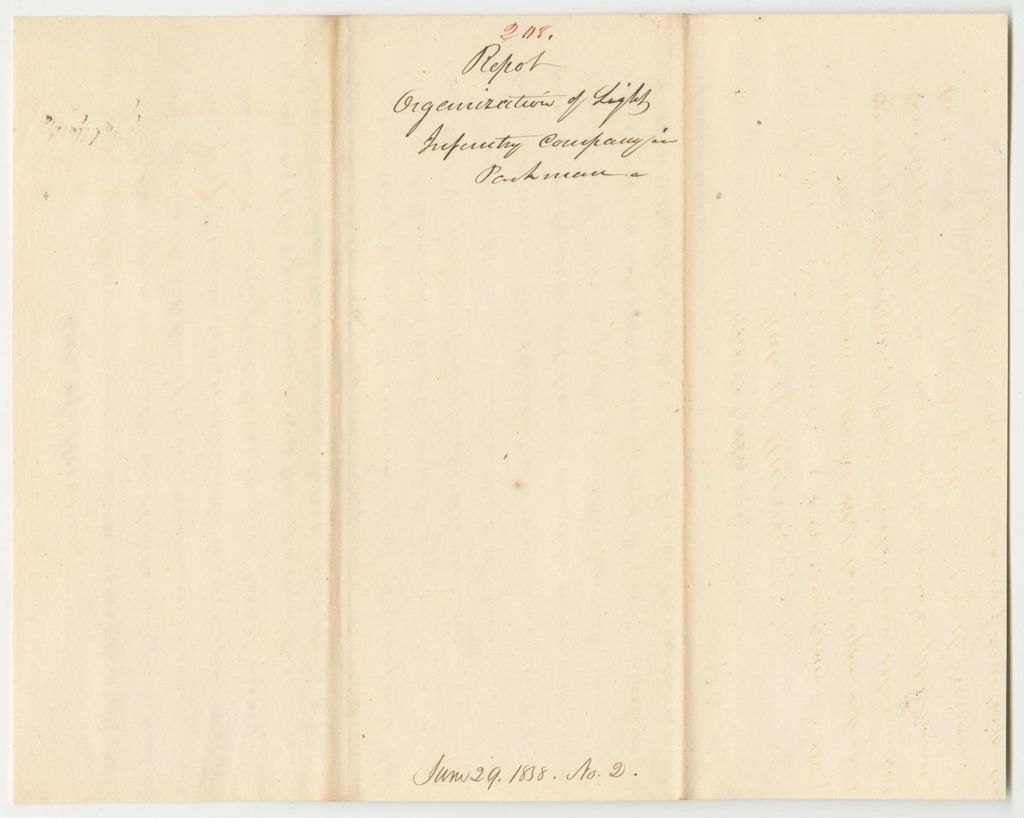 208.
Report
Organization of Light
Infantry Company in
Parkman
June 29. 1838. No. 2.